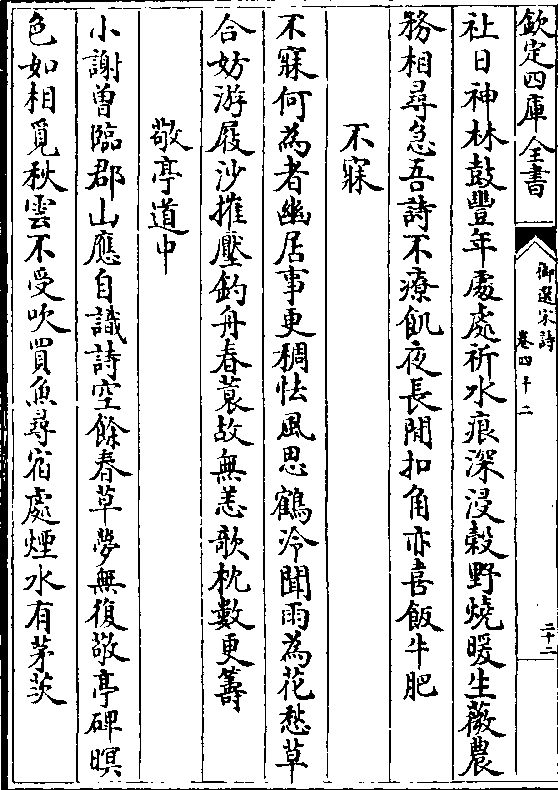 欽定四庫全書
御選宋詩
卷四十二
二十二
社日神林鼓豐年處處祈水痕深浸穀野燒暖生薇農
務相尋急吾詩不療飢夜長閒扣角亦喜飯牛肥
不寐
不寐何為者幽居事更稠怯風思鶴冷聞雨為花愁草
合妨游屐沙摧壓釣舟春蓑故無恙歌枕數更籌
敬亭道中
小謝曽臨郡山應自識詩空餘春草夢無復敬亭碑暝
色如相覓秋雲不受吹買魚尋宿處煙水有茅茨